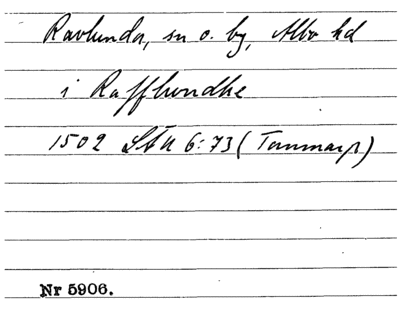 Ravlunda, sn o. by, Albo hd
i Rafflundhe
1502 LÅU 6:73 (Tommarp)
Nr 5906.